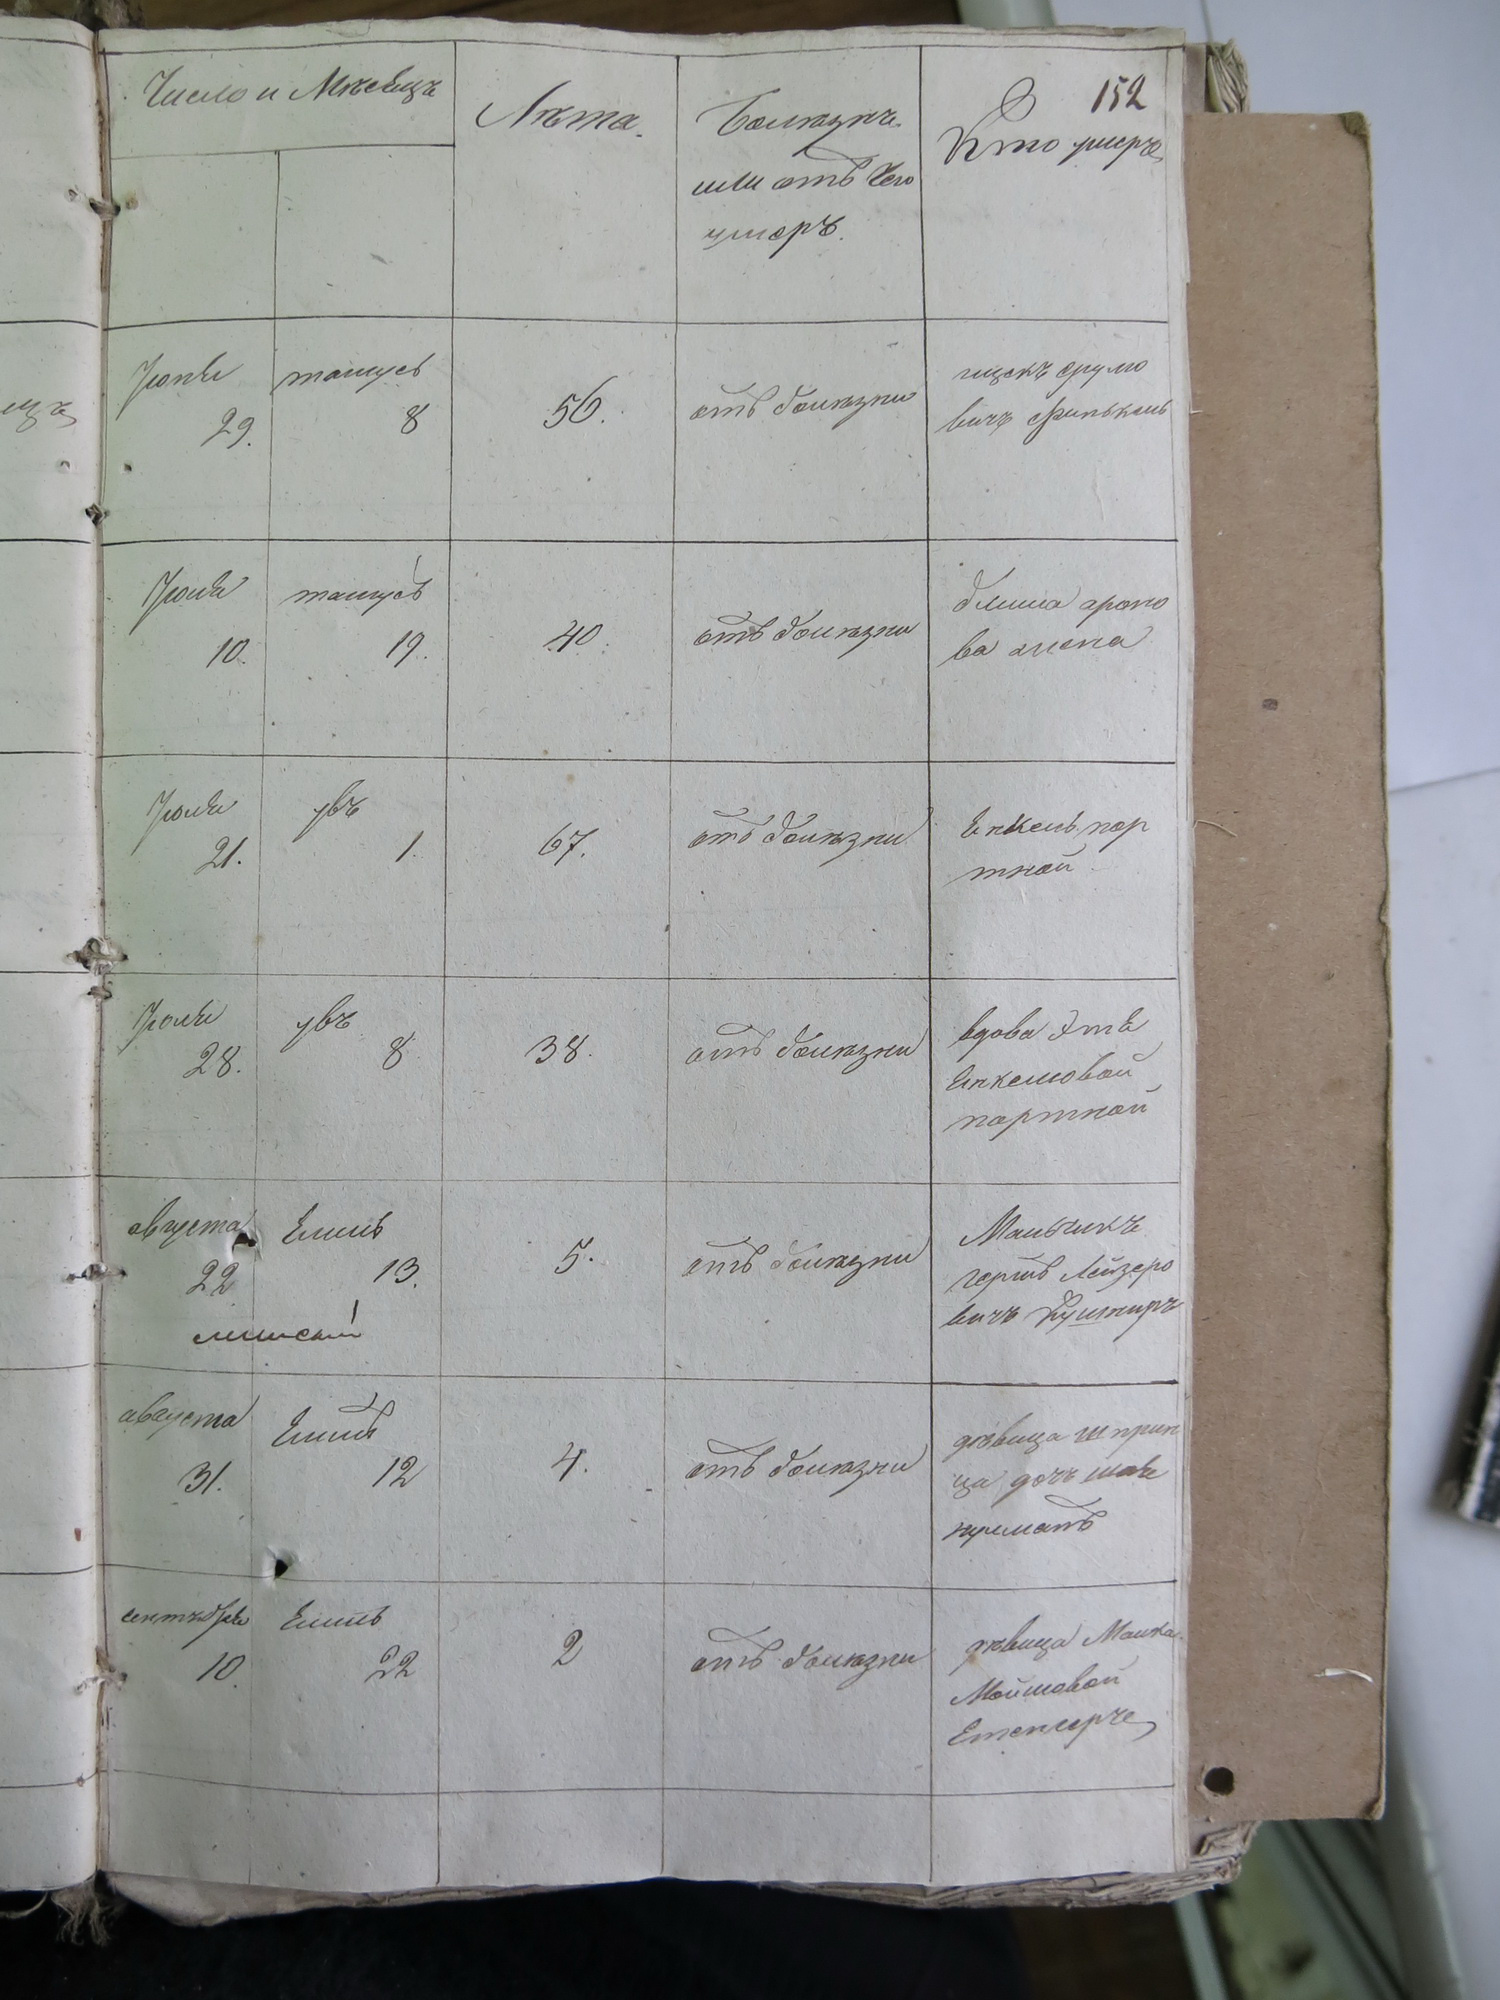 152
Число и Мѣсецъ
Лѣта.
Болѣзнь
или отъ чего
умеръ.
Кто умеръ
июня
29.
тамусъ
8
56.
отъ болѣзни
ицекъ срулю
вичъ финькель
июля
10.
тамусъ
19.
40.
отъ болѣзни
ароно
ва жена
июля
21.
увъ
1.
67.
отъ болѣзни
Енкель пор
тной
июля
28.
увъ
8
38.
отъ болѣзни
вдова Этя
Енкелювой
портной
августа
22
Елилъ
13.
5.
отъ болѣзни
Мальчикъ
гершъ Лейзеро
вичъ Кушниръ
августа
31.
Елилъ
12
4.
отъ болѣзни
дѣвица шприн
ца дочъ
сентября
10.
Елилъ
22
2
отъ болѣзни
дѣвица Малка
Мойшовой